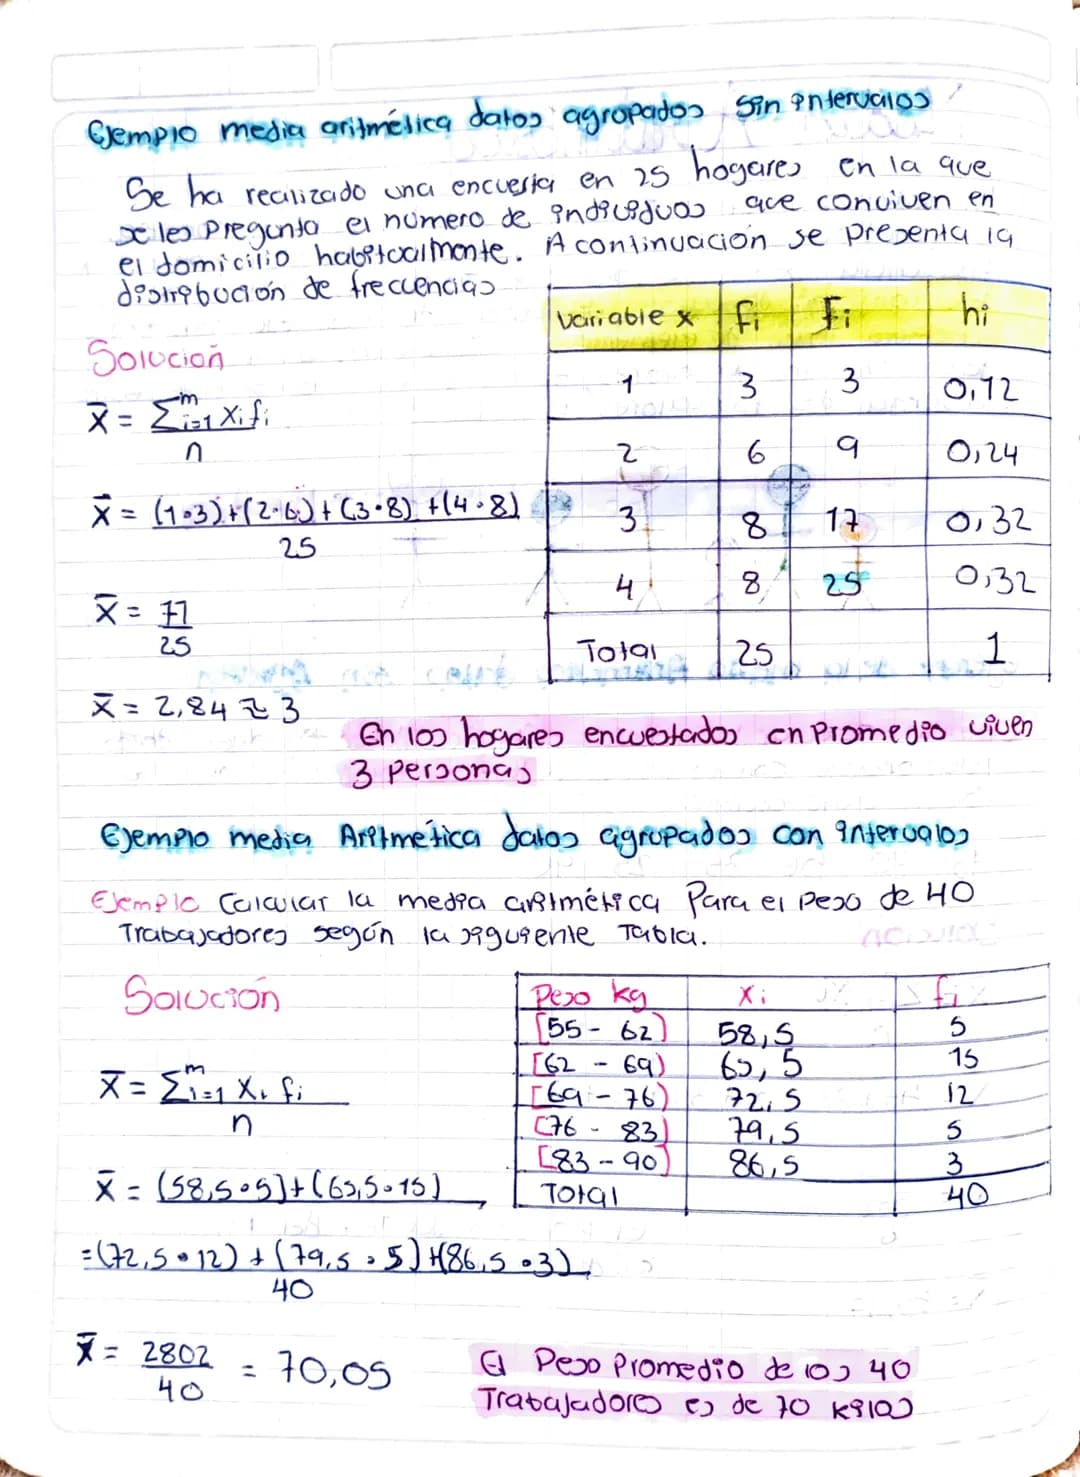 Ejemplo media aritmética datos agropados sin intervalos
Se ha realizado una encuesta en 25 hogares en la que
se les pregunto el numero de individuos que conviven en
el domicilio habitualmente. A continuación se presenta la
distribución de freccencias
variable x fi Fi hi
1 3 3 0,12
2 6 9 0,24
3 8 17 0,32
4 8 25 0,32
Total 25 1
Solución
x̄ = Σᵐᵢ₌₁ xᵢ fᵢ
n
x̄ = (1·3)+(2·6)+(3·8)+(4·8)
25
x̄ = 71
25
x̄ = 2,84 ≈ 3
En los hogares encuestados en promedio viven
3 personas
Ejemplo media Aritmética datos agrupados con intervalos
Ejemplo Calcular la media aritmética Para el peso de 40
Trabajadores según la siguiente Tabla.
Solución
Peso kg xi fi
[55 - 62) 58,5 5
[62 - 69) 65,5 15
[69 - 76) 72,5 12
[76 - 83) 79,5 5
[83 - 90) 86,5 3
Total 40
x̄ = Σᵐᵢ₌₁ xᵢ fᵢ
n
x̄ = (58,5·5)+(65,5·15)
=(72,5·12)+(79,5·5)+(86,5·3)
40
x̄ = 2802 = 70,05
40
El Peso Promedio de los 40
Trabajadores es de 70 kilos